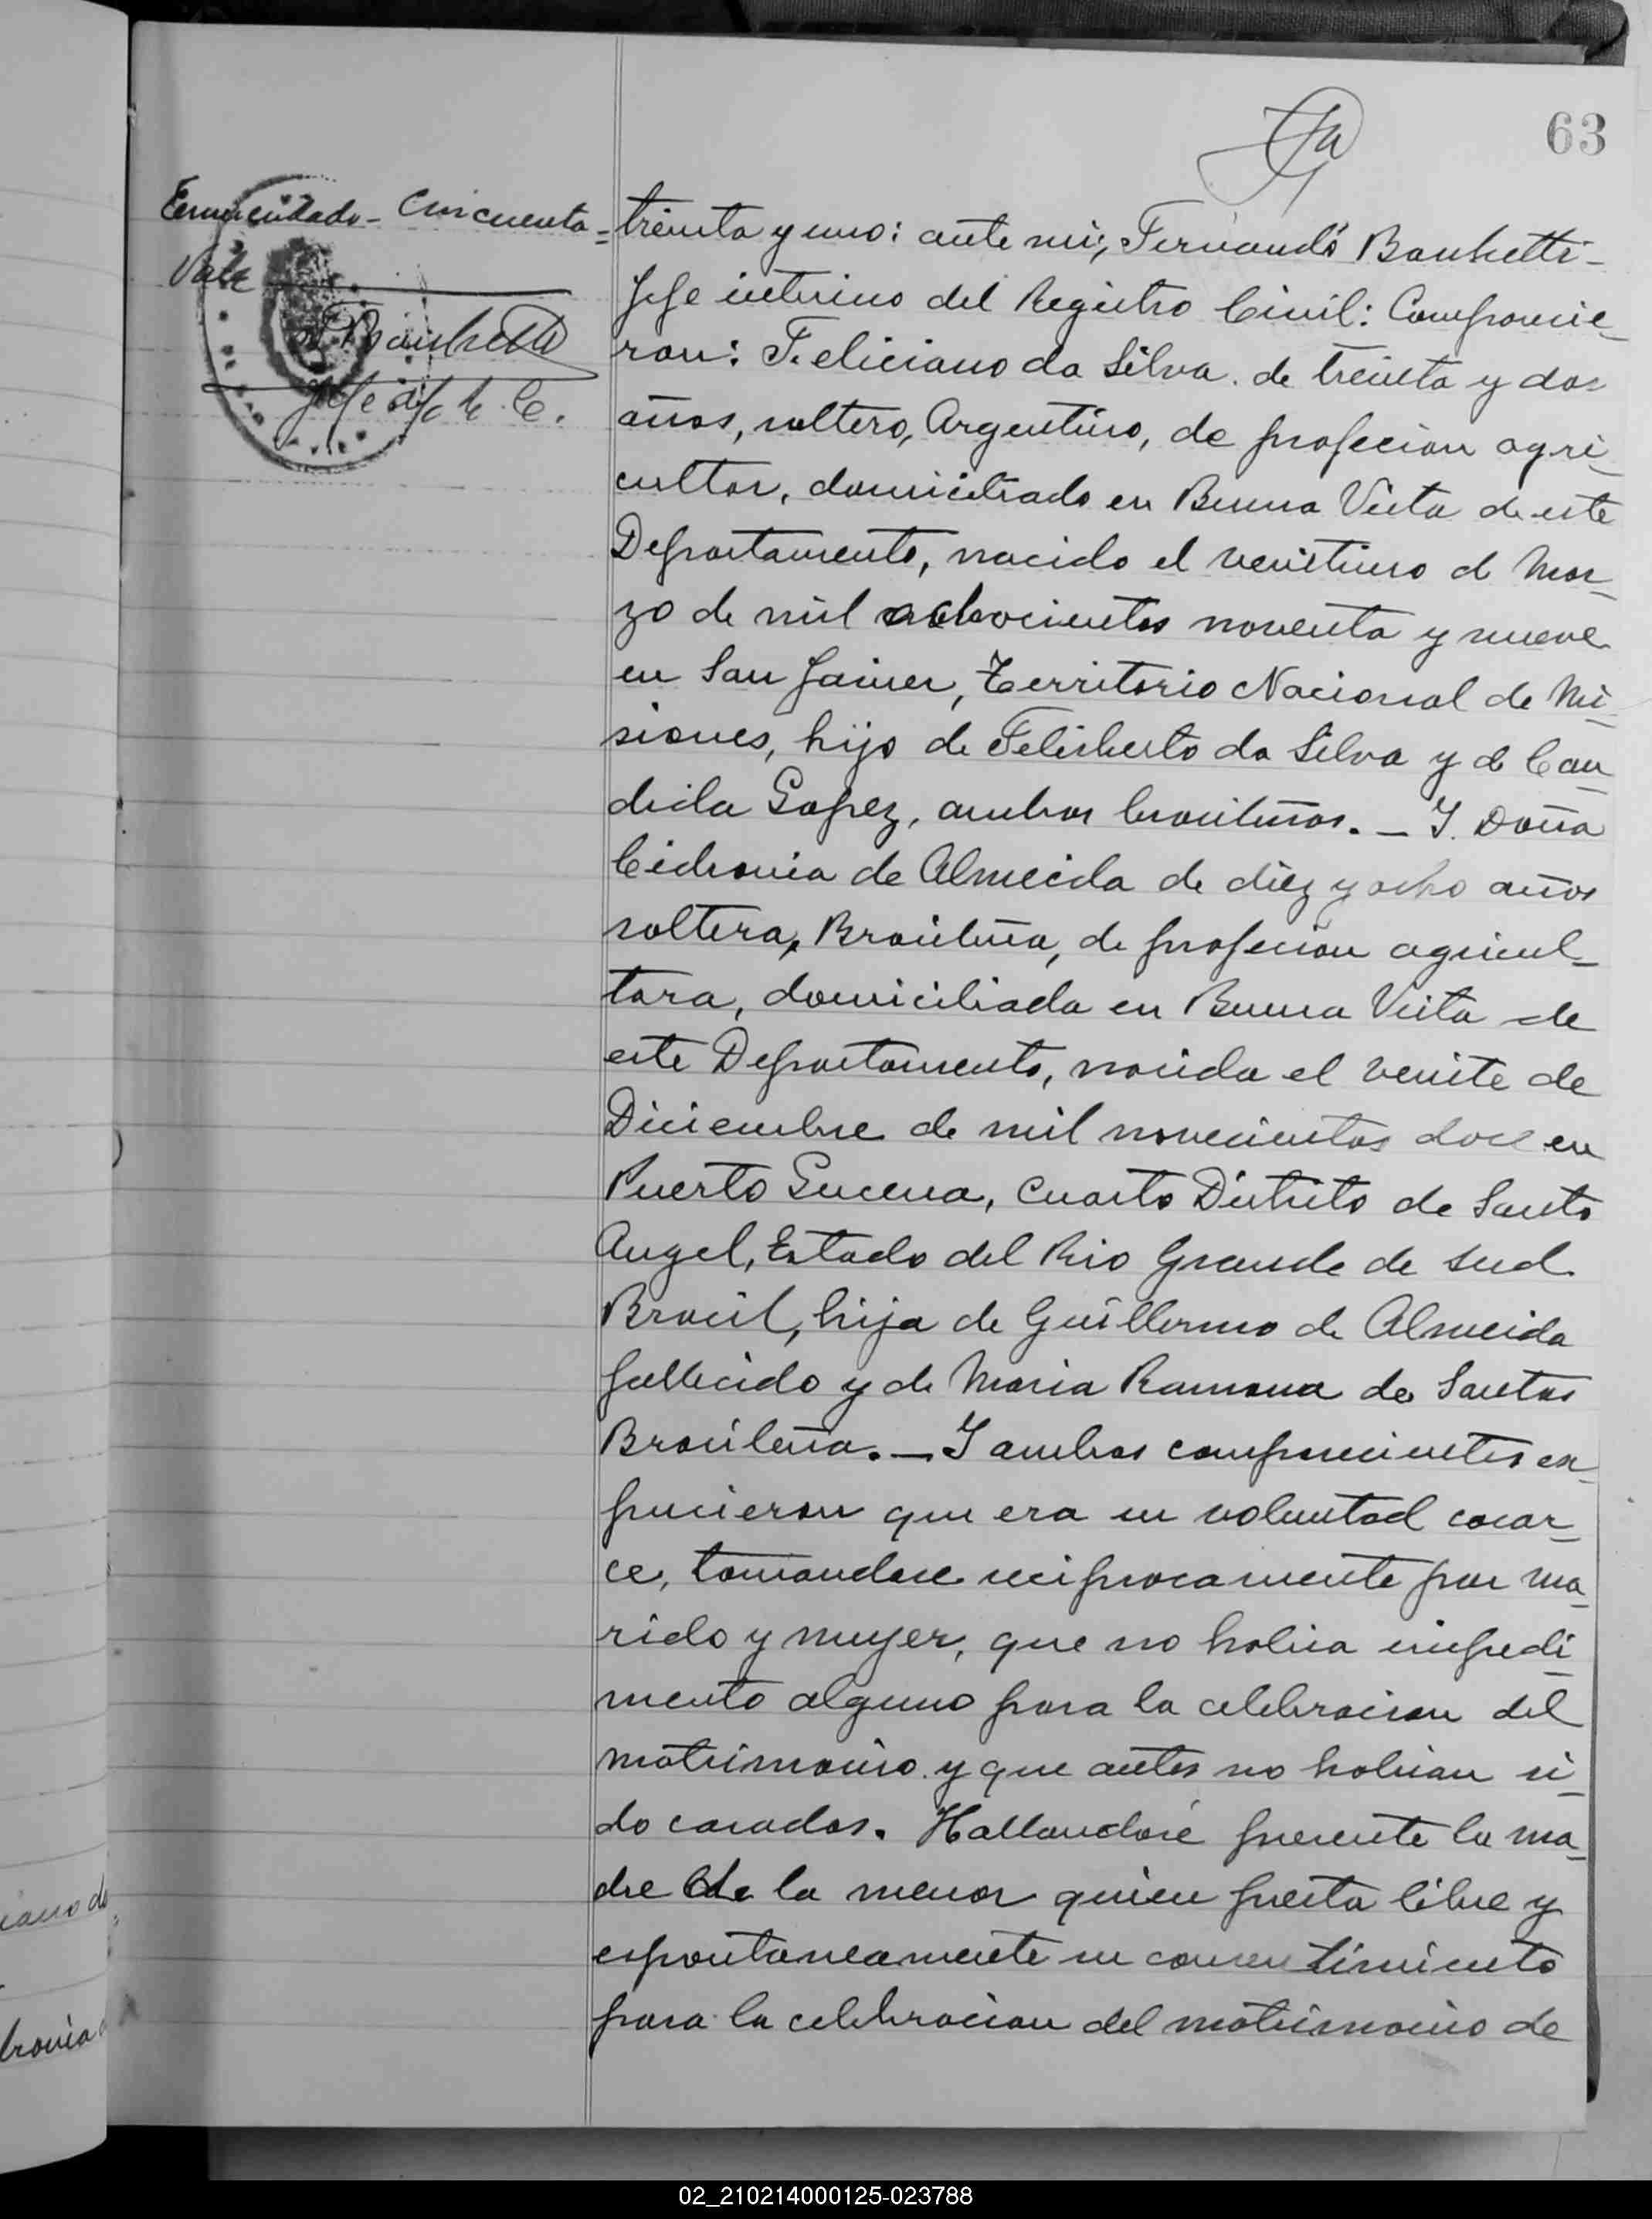 63
Enmendado - Cincuenta =
Vale
F Banchetti
Jefe
treinta y uno: ante mi, Fernando Banchetti -
Jefe interino del Registro Civil: Comparecie_
ron: Feliciano da Silva. de treinta y dos
años, soltero, Argentino, de profecion agri_
cultor, domiciliado en Buena Vista de este
Departamento, nacido el veintiuno d Mar_
zo de mil ochocientos noventa y nueve
en San Javier, Territorio Nacional de Mi_
siones, hijo de Felisberto da Silva y d Can_
dida Lopez, ambos brasileños. _ Y. Doña
Cidronia de Almeida de diez y ocho años
soltera, Brasileña, de profesion agricul_
tora, domiciliada en Buena Vista de
este Departamento, nacida el veinte de
Diciembre de mil novecientos doce en
Puerto Lucena, Cuarto Distrito de Santo
Angel, Estado del Rio Grande de Sud
Brasil, hija de Guillermo de Almeida
fallecido y de Maria Ramona de Santos
Brasileña. _ Y ambos comparecientes ex_
pucieron que era su voluntad casar_
ce, tomandose reciprocamente por ma_
rido y muger, que no habia impedi_
mento alguno para la celebracion del
matrimonio y que antes no habian si_
do casados. Hallandose presente la ma_
dre de la menor quien presta libre y
espontaneamente su consentimiento
para la celebracion del matrimonio de
iano da
dronia d
02_210214000125-023788